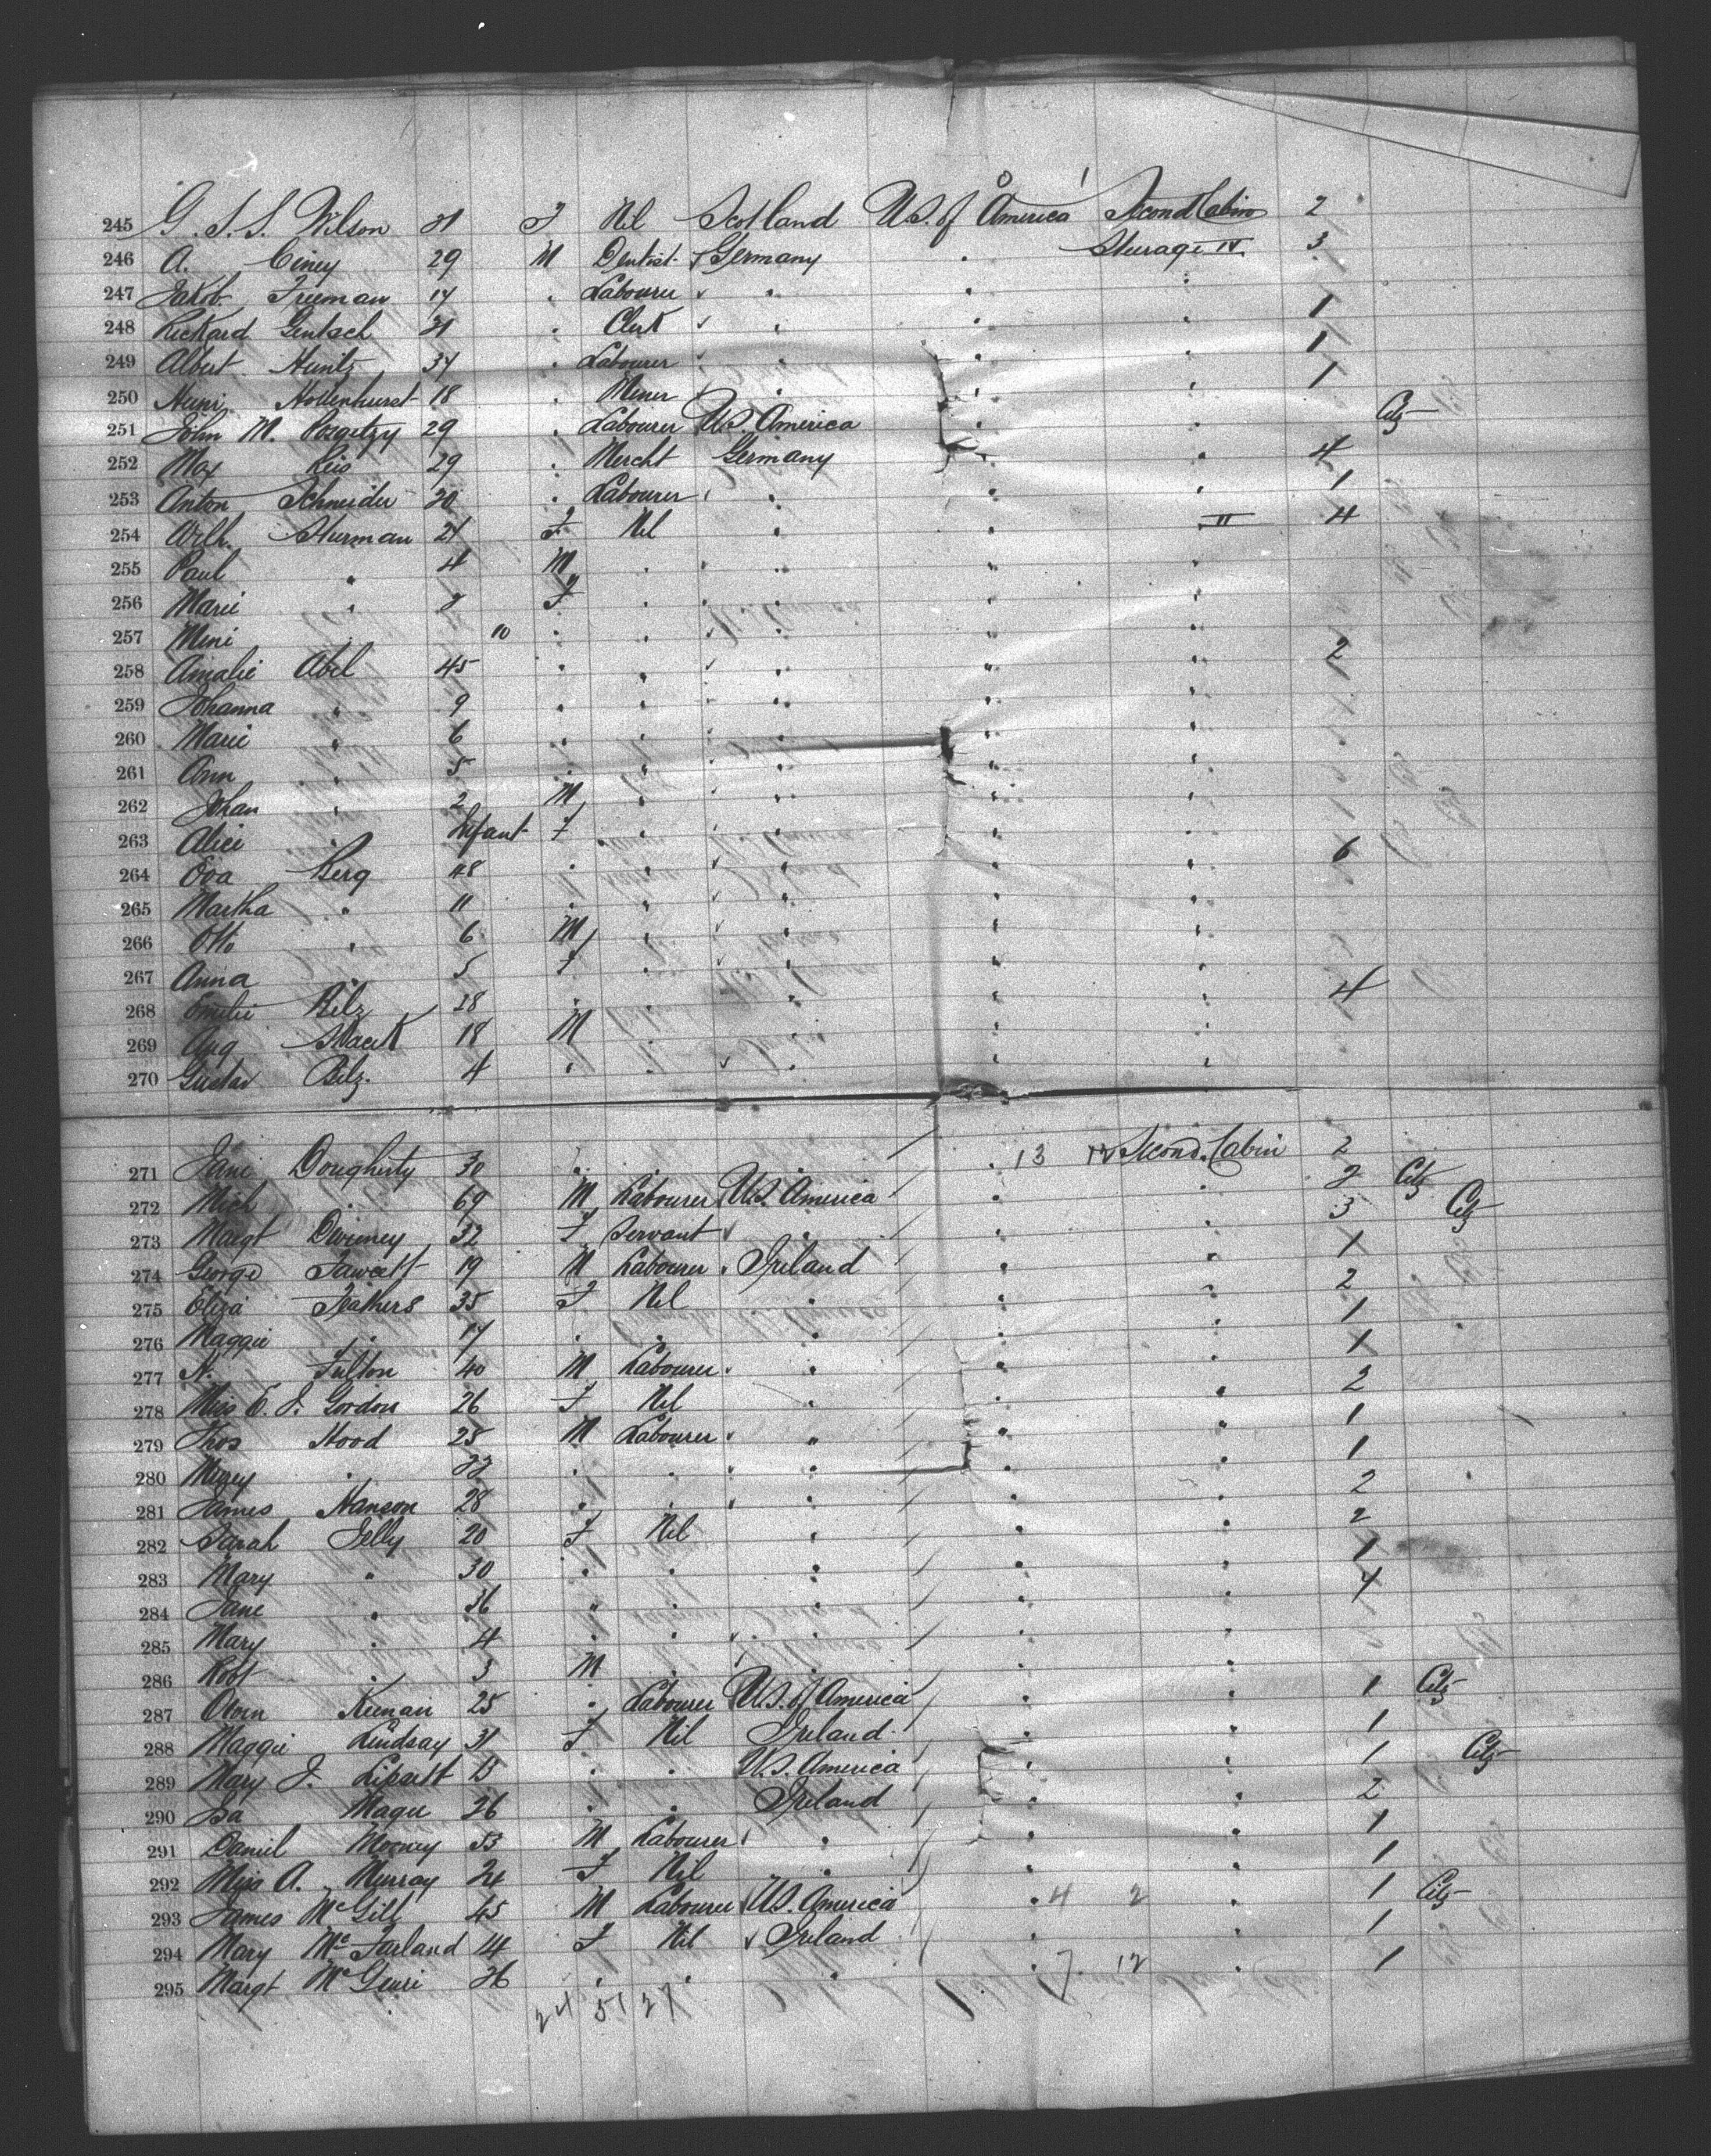 245 G. S. S. Wilson 21 F Nil Scotland U.S. of America Second Cabin 2
246 A. 29 M Dentist Germany " Steerage IV 3
247 Jakob Freeman 17 " Labourer " " "
248 Rickard Gentsch 21 " Clerk " " " 1
249 Albert Huntz 34 " Labourer " " " 1
250 Hollenhurst 18 " Miner " " " 1
251 John M. 29 " Labourer U.S. America Citz
252 Max Reis 29 " Mercht Germany " " 4
253 Anton Schneider 20 " Labourer " " " 1
254 Wilh. Sturman 24 F Nil " " " II 4
255 Paul " 4 M " " " "
256 Marie " F " " " "
257 Mini 10 " " " " "
258 Amalie Abel 45 " " " " " 2
259 Johanna " 9 " " " " "
260 Marie " 6 " " " " "
261 Ann " 5 " " " " "
262 Johan " 2 M " " " "
263 Alici Infant F " " " "
264 Eva Berg 48 " " " " " 6
265 Martha " 11 " " " " "
266 Otto " 6 M " " " "
267 Anna " 5 F " " " "
268 Emilie Bilz 28 " " " " 4
269 Aug 18 M " "
270 Gustav Bilz. 4 " " " "
271 Jane Dougherty 30 " " 13 12 Second Cabin 2
272 Mich " 69 M Labourer U.S. America " " 2 Citz
273 Margt 32 F Servant " " 3 Citz
274 George Fawcett 19 M Labourer Ireland " " 1
275 Eliza Feathers 35 F Nil " " " 2
276 Maggie " 17 " " " " " 1
277 N. Fulton 40 M Labourer " " " 1
278 Miss E. J. Gordon 26 F Nil " " " 2
279 Thos Hood 25 M Labourer " " " 1
280 " 22 " " " " " 1
281 James Hanson 28 " " " " " 2
282 Sarah Jelly 20 F Nil " " " 2
283 Mary " 30 " " " " " 1
284 Jane " 36 " " " " " 4
285 Mary " 4 " " " " "
286 Robt " 3 M " " " "
287 Owen Keenan 25 " Labourer U.S. of America " " 1 Citz
288 Maggie Lindsay 31 F Nil Ireland " " 1
289 Mary J. Lipsett 13 " " U.S. America " " 1 Citz
290 Isa Magee 26 " " Ireland " " 2
291 Daniel Mooney 53 M Labourer " " " 1
292 Miss A. Murray 24 F Nil " " " 1
293 James McGill 45 M Labourer U.S. America " 4 2 " 1 Citz
294 Mary McFarland 14 F Nil Ireland " " 1
295 Margt 26 " " " " 7 12 " 1
24 51 27